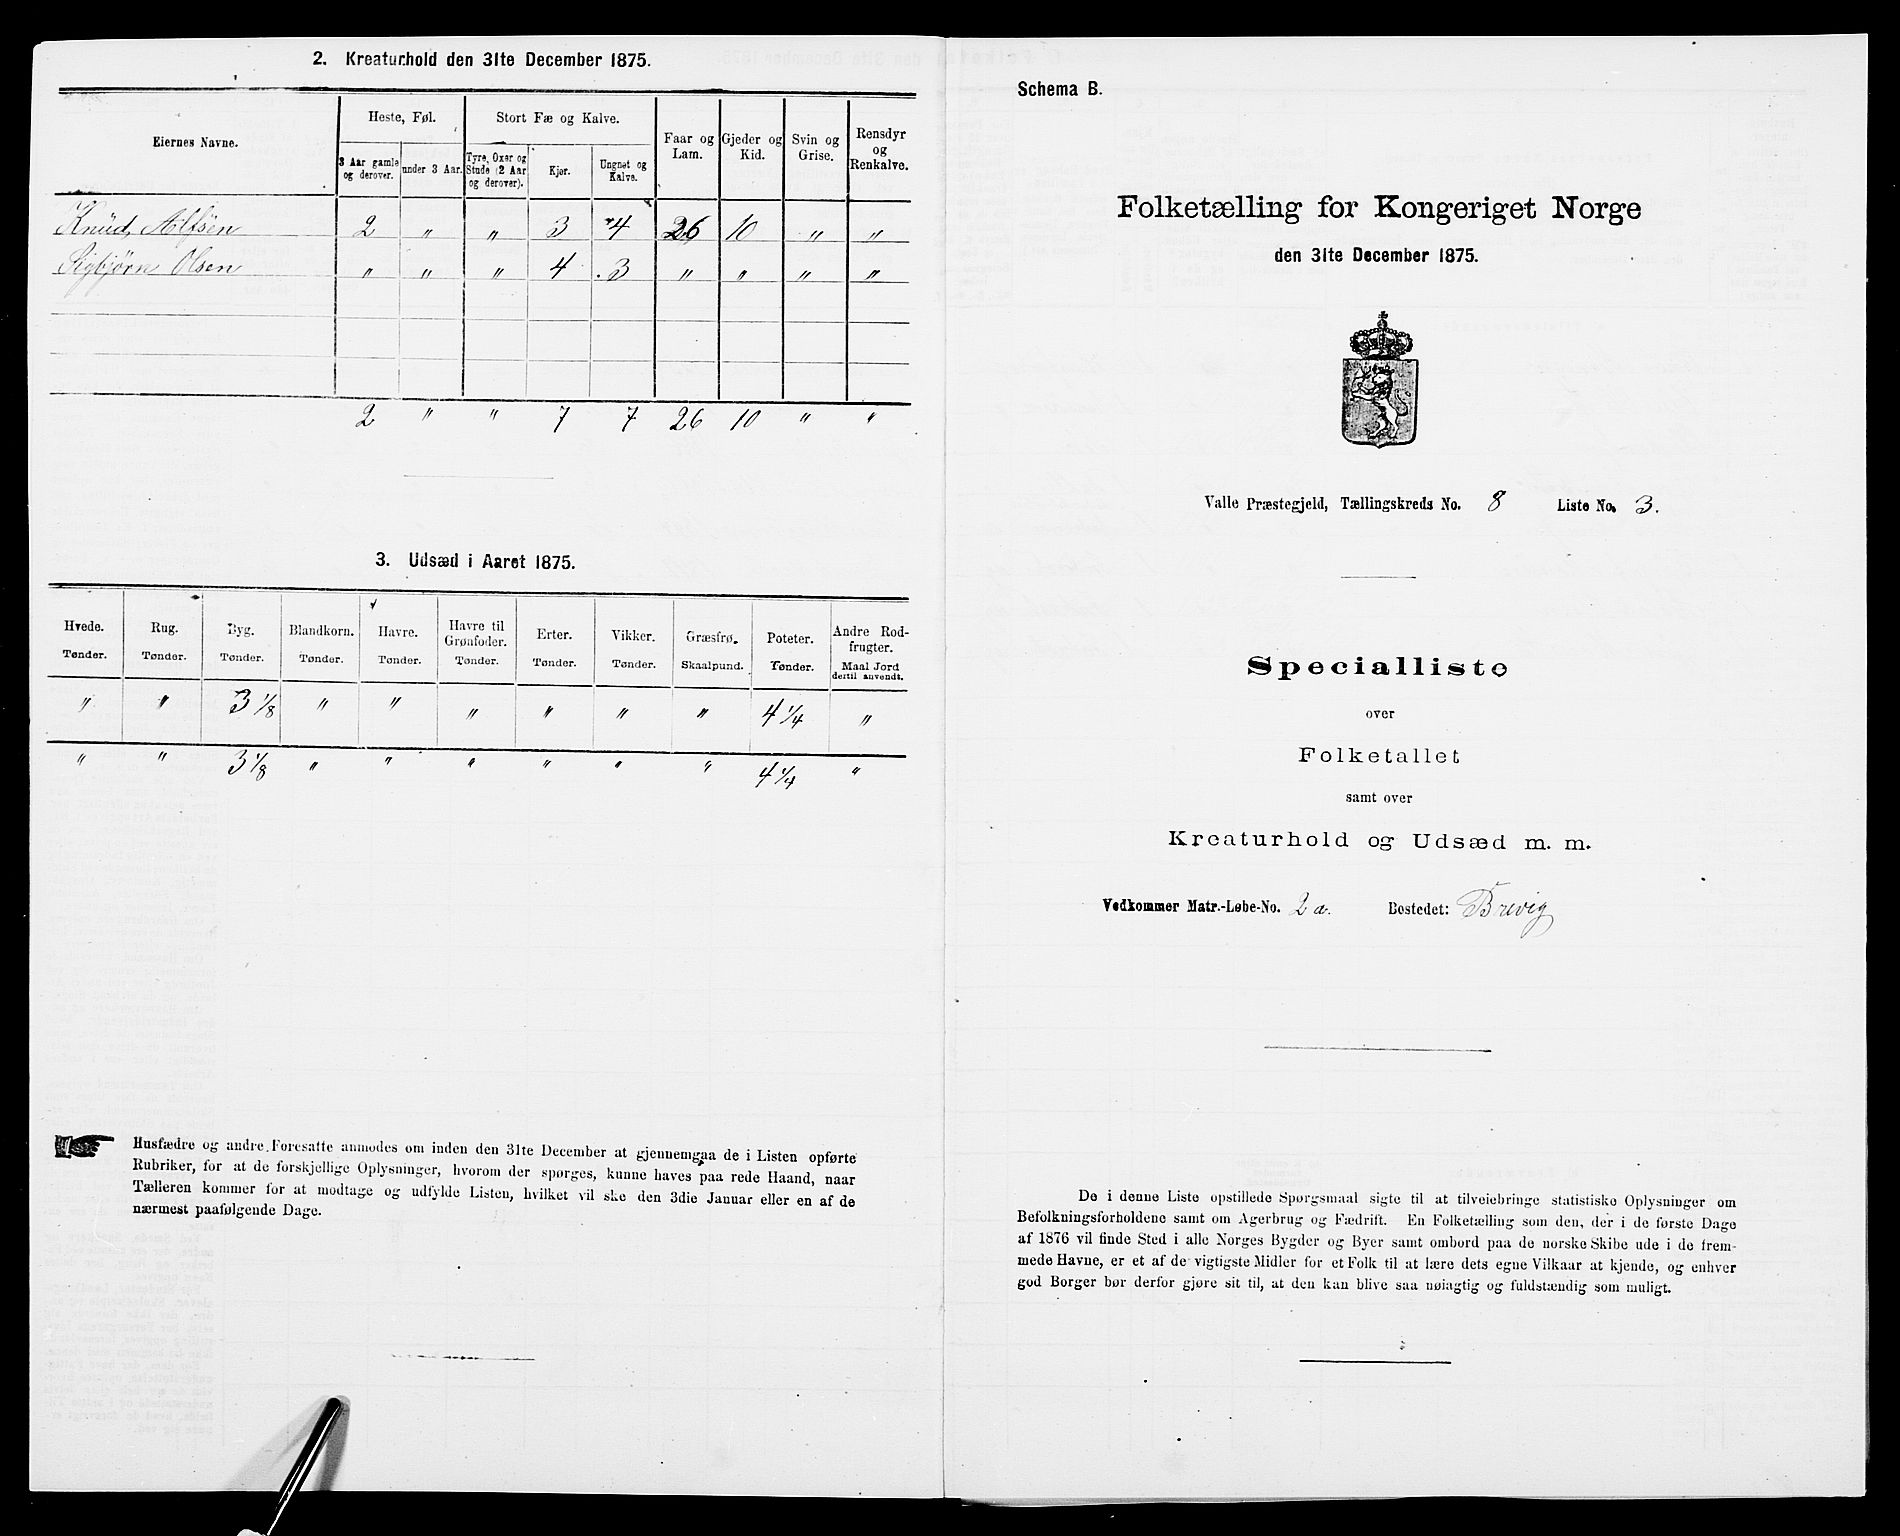 2. Kreaturhold den 31te December 1875.
Eiernes Navne.
Heste, Føl.
Stort Fæ og Kalve.
Faar og Lam.
Gjeder og Kid.
Svin og Grise.
Rensdyr og Renkalve.
3 Aar gamle og derover.
under 3 Aar.
Tyre, Oxer og Stude (2 Aar og derover).
Kjør.
Ungnøt og Kalve.
Knud Alfsen 2 " " 3 4 26 10 " "
Sigbjørn Olsen " " " 4 3 " " " "
2 " " 7 7 26 10 " "
3. Udsæd i Aaret 1875.
Hvede. Tønder.
Rug. Tønder.
Byg. Tønder.
Blandkorn. Tønder.
Havre. Tønder.
Havre til Grønfoder. Tønder.
Erter. Tønder.
Vikker. Tønder.
Græsfrø. Skaalpund.
Poteter. Tønder.
Andre Rodfrugter. Maal Jord dertil anvendt.
" " 3 1/8 " " " " " " 4 1/4 "
" " 3 1/8 " " " " " " 4 1/4 "
Husfædre og andre Foresatte anmodes om inden den 31te December at gjennemgaa de i Listen opførte
Rubriker, for at de forskjellige Oplysninger, hvorom der spørges, kunne haves paa rede Haand, naar
Tælleren kommer for at modtage og udfylde Listen, hvilket vil ske den 3die Januar eller en af de
nærmest paafølgende Dage.
Schema B.
Folketælling for Kongeriget Norge
den 31te December 1875.
Valle Præstegjeld, Tællingskreds No. 8 Liste No. 3.
Specialliste
over
Folketallet
samt over
Kreaturhold og Udsæd m. m.
Vedkommer Matr.-Løbe-No. 2a. Bostedet: Brevig
De i denne Liste opstillede Spørgsmaal sigte til at tilveiebringe statistiske Oplysninger om
Befolkningsforholdene samt om Agerbrug og Fædrift. En Folketælling som den, der i de første Dage
af 1876 vil finde Sted i alle Norges Bygder og Byer samt ombord paa de norske Skibe ude i de frem-
mede Havne, er et af de vigtigste Midler for et Folk til at lære dets egne Vilkaar at kjende, og enhver
god Borger bør derfor gjøre sit til, at den kan blive saa nøiagtig og fuldstændig som muligt.